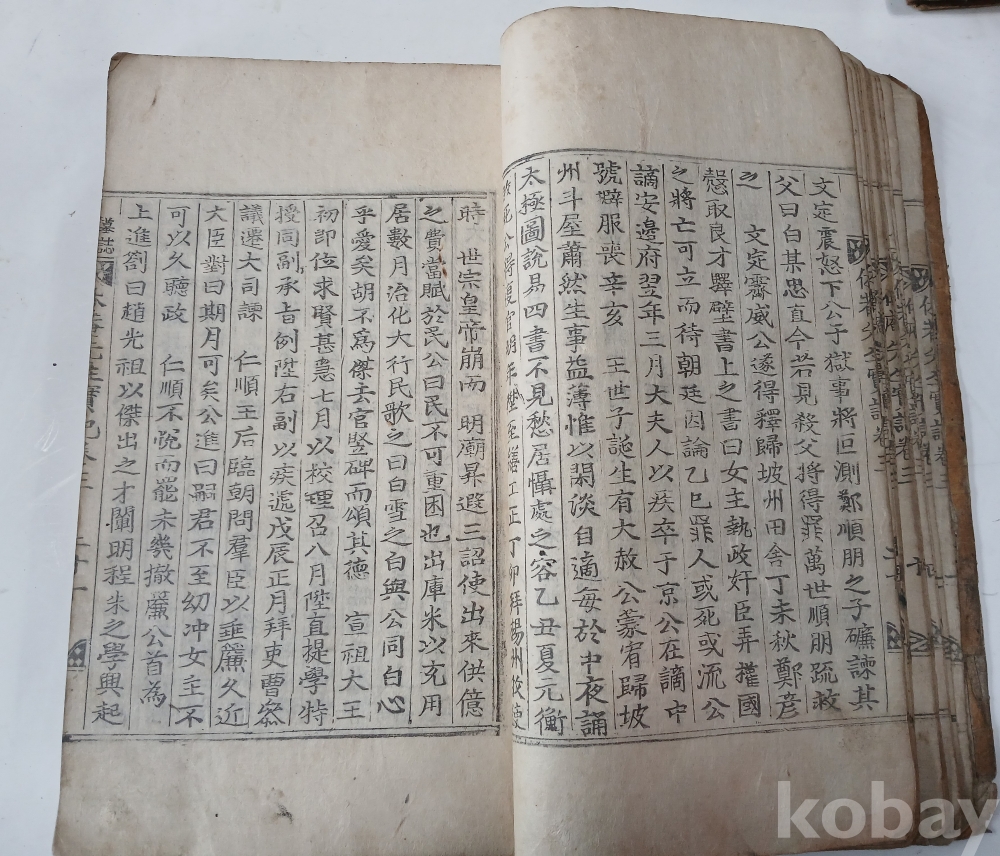 文定震怒下公于獄事將叵測鄭順朋之子礦諫其
父曰白某思直今若見殺父將得罪萬世順朋疏救
之 文定霽威公遂得釋歸坡州田舍丁未秋鄭彦
慤取良才驛壁書上之書曰女主執政奸臣弄權國
之將亡可立而待朝廷因論乙巳罪人或死或流公
謫安邊府翌年三月大夫人以疾卒于京公在謫中
號擗服喪辛亥 王世子誕生有大赦公蒙宥歸坡
州斗屋蕭然生事益薄惟以閑淡自適每於中夜誦
太極圖說易四書不見愁居懾處之容乙丑夏元衡
死公得復官明年 丁卯拜楊州
時 世宗皇帝崩而 明廟昇遐三詔使出來供億
之費當賦於民公曰民不可重困也出庫米以充用
居數月治化大行民歌之曰白雪之白與公同白心
乎愛矣胡不爲傑去官竪碑而頌其德 宣祖大王
初即位求賢甚急七月以校理召八月陞直提學特
授同副承旨例陞右副以疾遞戊辰正月拜吏曹參
議遷大司諫 仁順王后臨朝問羣臣以垂簾久近
大臣對曰期月可矣公進曰嗣君不至幼冲女主不
可以久聽政 仁順不悅而罷未幾撤簾公首為
上進劄曰趙光祖以傑出之才闡明程朱之學興起
墓誌
kobay